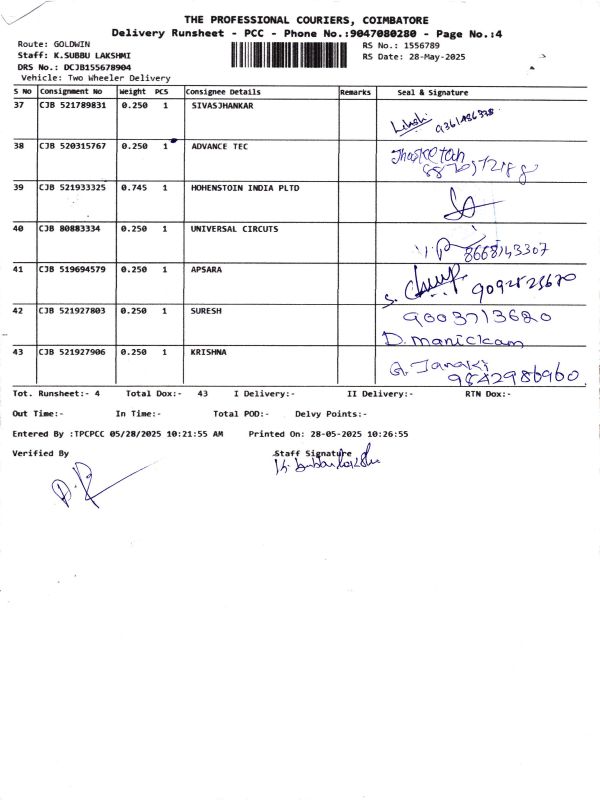 THE PROFESSIONAL COURIERS, COIMBATORE
Delivery Runsheet - PCC - Phone No.:9047080280 - Page No.:4
Route: GOLDWIN
RS No.: 1556789
Staff: K.SUBBU LAKSHMI
RS Date: 28-May-2025
DRS No.: DCJB155678904
Vehicle: Two Wheeler Delivery
S No Consignment No Weight PCS Consignee Details Remarks Seal & Signature
37 CJB 521789831 0.250 1 SIVASJHANKAR
38 CJB 520315767 0.250 1 ADVANCE TEC
39 CJB 521933325 0.745 1 HOHENSTOIN INDIA PLTD
40 CJB 80883334 0.250 1 UNIVERSAL CIRCUTS
8668143307
41 CJB 519694579 0.250 1 APSARA
42 CJB 521927803 0.250 1 SURESH
9003713620
D. manickam
43 CJB 521927906 0.250 1 KRISHNA
G. Janaki
9842986960
Tot. Runsheet:- 4 Total Dox:- 43 I Delivery:- II Delivery:- RTN Dox:-
Out Time:- In Time:- Total POD:- Delvy Points:-
Entered By :TPCPCC 05/28/2025 10:21:55 AM Printed On: 28-05-2025 10:26:55
Verified By Staff Signature